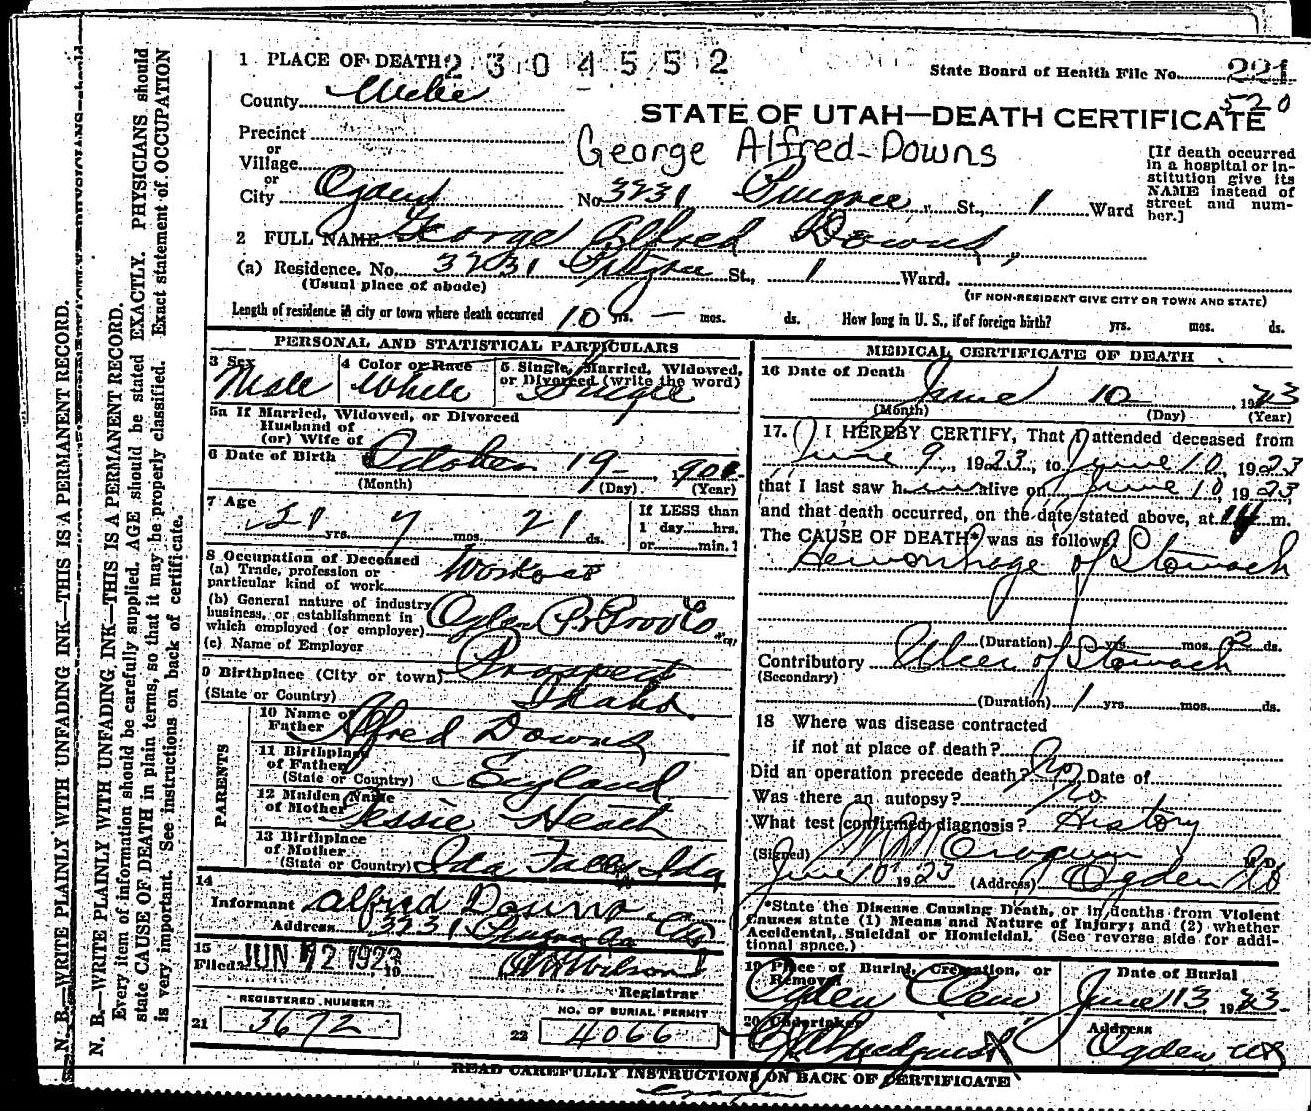 1 PLACE OF DEATH 2 3 0 4 5 5 2
State Board of Health File No. 221
520
County Weber
STATE OF UTAH—DEATH CERTIFICATE
Precinct
or
Village
or
City Ogden
George Alfred Downs
No 3231 Pingree St., 1 Ward
[If death occurred
in a hospital or in-
stitution give its
NAME instead of
street and num-
ber.]
2 FULL NAME George Alfred Downs
(a) Residence. No. 3231 Pingree St., 1 Ward.
(Usual place of abode)
(IF NON-RESIDENT GIVE CITY OR TOWN AND STATE)
Length of residence in city or town where death occurred 10 yrs. — mos. ds. How long in U. S., if of foreign birth? yrs. mos. ds.
PERSONAL AND STATISTICAL PARTICULARS
3 Sex Male
4 Color or Race White
5 Single, Married, Widowed,
or Divorced (write the word) Single
5a If Married, Widowed, or Divorced
Husband of
(or) Wife of
6 Date of Birth October 19 1901
(Month) (Day) (Year)
7 Age 21 yrs. 7 mos. 21 ds.
If LESS than
1 day hrs.
or min.?
8 Occupation of Deceased
(a) Trade, profession or
particular kind of work
(b) General nature of industry,
business, or establishment in
which employed (or employer)
(c) Name of Employer
9 Birthplace (City or town) Prospect
(State or Country) Idaho.
PARENTS
10 Name of
Father Alfred Downs
11 Birthplace
of Father England
(State or Country)
12 Maiden Name
of Mother Jessie Heath
13 Birthplace
of Mother
(State or Country) Ida Falls, Ida
14
Informant Alfred Downs
Address 3231 Pingree Av
15
Filed JUN 12 1923 Wilson
19
Registrar
REGISTERED NUMBER
21 3672
NO. OF BURIAL PERMIT
22 4066
MEDICAL CERTIFICATE OF DEATH
16 Date of Death June 10 1923
(Month) (Day) (Year)
17. I HEREBY CERTIFY, That I attended deceased from
June 9, 1923, to June 10, 1923
that I last saw him alive on June 10, 1923
and that death occurred, on the date stated above, at m.
The CAUSE OF DEATH* was as follows:
Hemorrhage of Stomach
(Duration) yrs. mos. 2 ds.
Contributory Ulcer of Stomach
(Secondary)
(Duration) 1 yrs. mos. ds.
18 Where was disease contracted
if not at place of death? No
Did an operation precede death? Date of
Was there an autopsy? No
What test confirmed diagnosis? History
(Signed) M. D.
June 10 1923 (Address) Ogden
*State the Disease Causing Death, or in deaths from Violent
Causes state (1) Means and Nature of Injury; and (2) whether
Accidental, Suicidal or Homicidal. (See reverse side for addi-
tional space.)
19 Place of Burial, Cremation, or
Removal
Ogden Cem
Date of Burial
June 13 1923
20 Undertaker
Address
Ogden Ut
READ CAREFULLY INSTRUCTIONS ON BACK OF CERTIFICATE
N. B.—WRITE PLAINLY WITH UNFADING INK—THIS IS A PERMANENT RECORD.
N. B.—WRITE PLAINLY WITH UNFADING INK—THIS IS A PERMANENT RECORD.
Every item of information should be carefully supplied. AGE should be stated EXACTLY. PHYSICIANS should
state CAUSE OF DEATH in plain terms, so that it may be properly classified. Exact statement of OCCUPATION
is very important. See instructions on back of certificate.